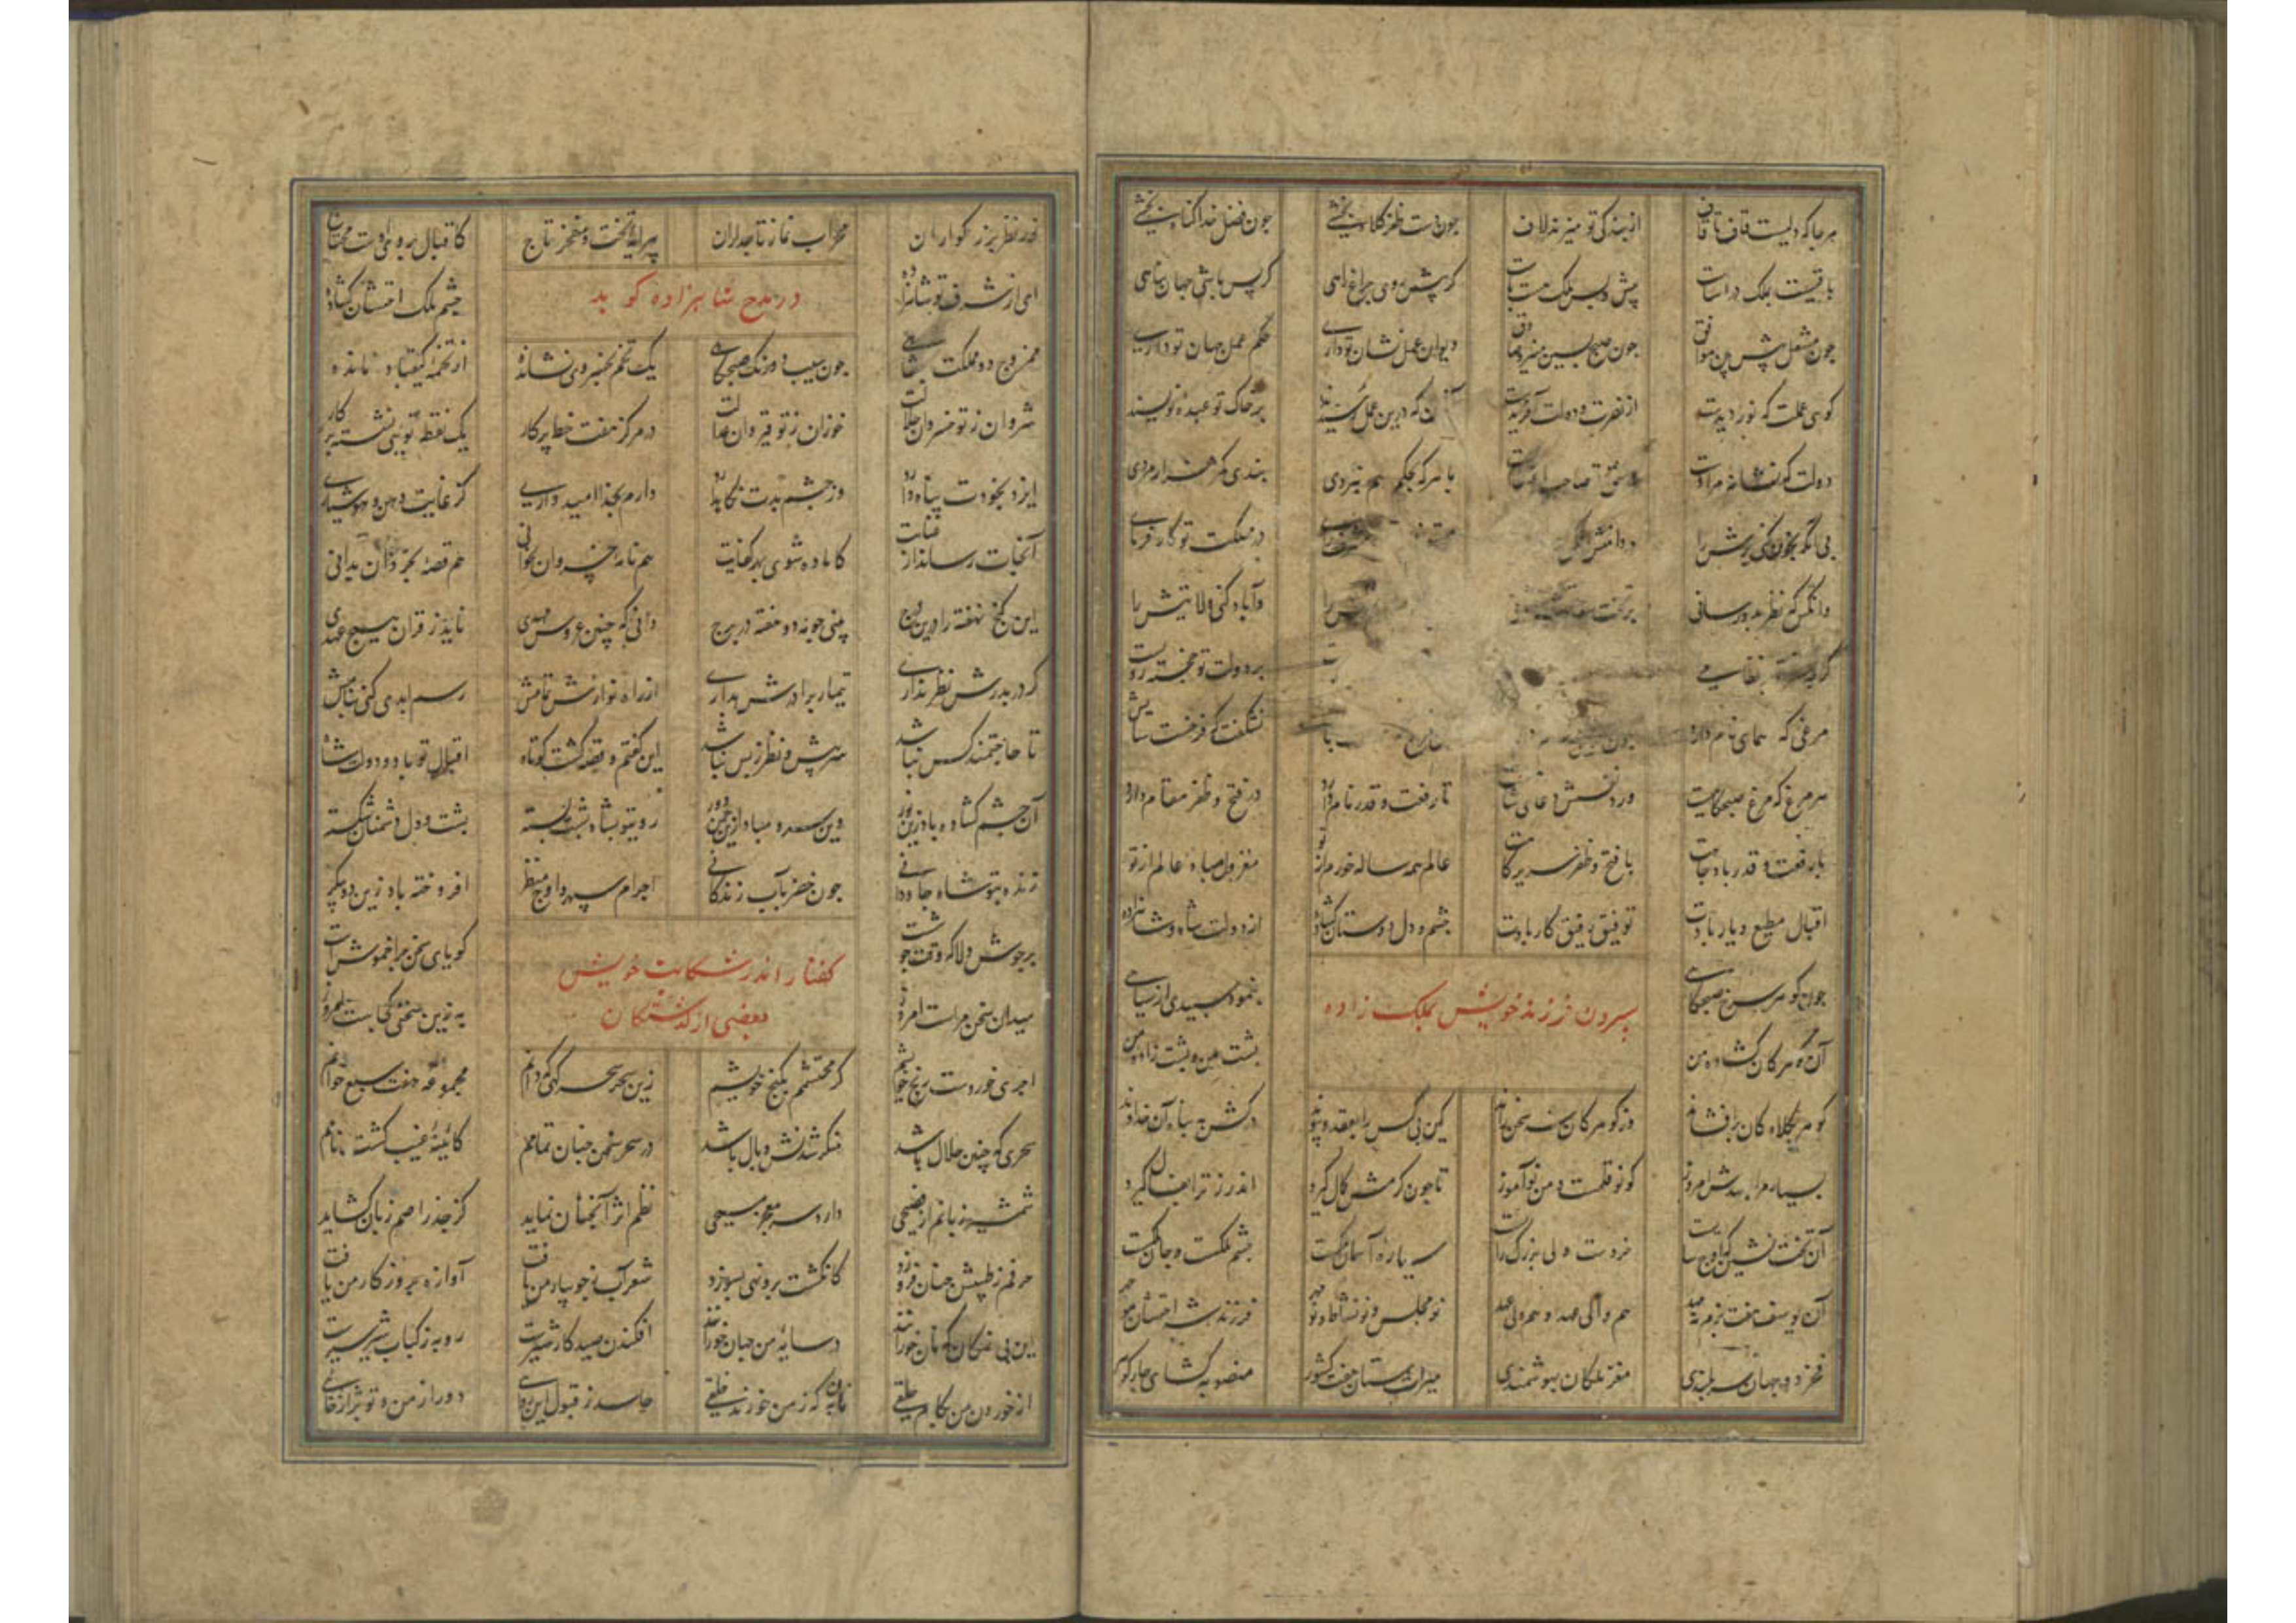 هر جا که دلیست قاف تا قاف از بندگی تو میزند لاف چون دست ظفر کلاه بخشی چون فضل خدا گناه بخشی
باقیست بملک در سیاست پیش و پس ملک هست پاست گر پیش روی چراغ راهی گر پس باشی جهان پناهی
چون مشعل پیش بین موافق چون صبح پسین منیر و صادق دیوان عمل نشان تو داری حکم عمل جهان تو داری
کوی عملت که نور دیدست از نصرت و دولت آفریدست آنان که درین عمل رئیسند بر خاک تو عبده نویسند
دولت که نشانه مرادت صاحب با هر که بحکم هم نبردی بندی کمر هزار مردی
بی آنکه بخون کنی برش را در دامنش در مملکت تو کار فرمای
وانکس که نظر بدو رسانی بر تخت را وآباد کنی ولایتش را
بر دولت تو خجسته رویست
مرغی که همای نام دارد چون نشگفت که فرخست سایش
هر مرغ که مرغ صبحگاهست ورد نفسش دعای شاهست تا رفعت و قدر نام دارد در فتح و ظفر مقام دارد
با رفعت و قدر باد جاهت با فتح و ظفر سریر گاهت عالم همه ساله خرم از تو معزول مباد عالم از تو
اقبال مطیع و یار بادت توفیق رفیق کار بادت چشم و دل دوستان گشاده از دولت شاه و شاهزاده
سپردن فرزند خویش بملک زاده
چون گوهر سرخ صبحگاهی بنمود سپیدی از سیاهی
آن گوهر کان گشاده من پشت من و پشت زاده من
گوهر بکلاه کان برافشاند وز گوهر کان شه سخن راند کین بی کس را بعقد و پیوند درکش به پناه آن خداوند
بسپار مرا بعهدش امروز کو نو قلمست و من نوآموز تا چون کرمش کمال گیرد اندرز ترا بفال گیرد
آن تخت نشین که اوج سایست خردست ولی بزرگ رایست سیاره آسمان ملکست جسم ملکست و جان ملکست
آن یوسف هفت بزم و نه مهد هم والی عهد و هم ولی عهد نو مجلس و نو نشاط و نو مهر فرزند شه اخستان منوچهر
فخر دو جهان بسربلندی مغز ملکان بهوشمندی میراث ستان هفت کشور منصوبه گشای
نظر بزرگواران محراب نماز تاجداران پیرایه تخت و مفخر تاج کاقبال بروی اوست محتاج
در مدح شاهزاده گوید
ای از شرف تو شاهزاده چشم ملک اخستان گشاده
ممزوج دو مملکت بشاهی چون سیب دو رنگ صبحگاهی یک تخم بخسروی نشانده از تخمه کیقباد مانده
در مرکز هفت خط پرگار یک نقطه تویی نشسته بر کار
شروان ز تو خیروان خزران ز تو قیروان
ایزد بخودت پناه دارد وز چشم بدت نگاه دارد دارم بخدا امیدواری کز غایت ذهن و هوشیاری
آنجات رساند از عنایت کاماده شوی بهر کفایت هم نامه خسروان بخوانی هم قصه بخردان بدانی
این گنج نهفته را درین درج بینی چو مه دو هفته در برج دانی که چنین عروس مهدی ناید ز قران هیچ عهدی
گر در پدرش نظر نداری تیمار برادرش بداری از راه نوازش تمامش رسم ابدی کنی بنامش
تا حاجتمند کس نباشد سر پیش و نظر ز پس نباشد این گفتم و قصه گشت کوتاه اقبال تو باد و دولت شاه
آن چشم گشاده باد ازین نور وین سرو مباد از آن چمن دور روی تو بشاه پشت بسته پشت و دل دشمنان شکسته
زنده بتو شاه جاودانی چون خضر بآب زندگانی اجرام سپهر اوج منظر افروخته باد زین دو پیکر
گفتار اندر شکایت خویش
بعضی از گذشتگان
بر جوش دلا که وقت جوشست گویای سخن چرا خموشست
میدان سخن مراست امروز به زین سخنی کجاست امروز
اجری خور دست رنج خویشم گر محتشمم بگنج خویشم زین سحر سحرگهی که دانم مجموعه هفت سبع خوانم
سحری که چنین حلال باشد منکر شدنش وبال باشد در سحر سخن چنان تمامم کائینه غیب گشت نامم
شمشیر زبانم از فصیحی دارد سر معجز مسیحی نظم اثر آنچنان نماید کز جذر اصم زبان گشاید
حرفم ز تپش چنان فروزد کانگشت برو نهی بسوزد شعر آب ز جویبار من یافت آوازه بروزگار من یافت
این بی نمکان که نان خورانند در سایه من جهان خورانند افکندن صید کار شیرست روبه ز کباب شیر سیرست
از خوردن من بکام و حلقی به که ز من خورند خلقی حاسد ز قبول این روائی دور از من و تو بژاژ خائی